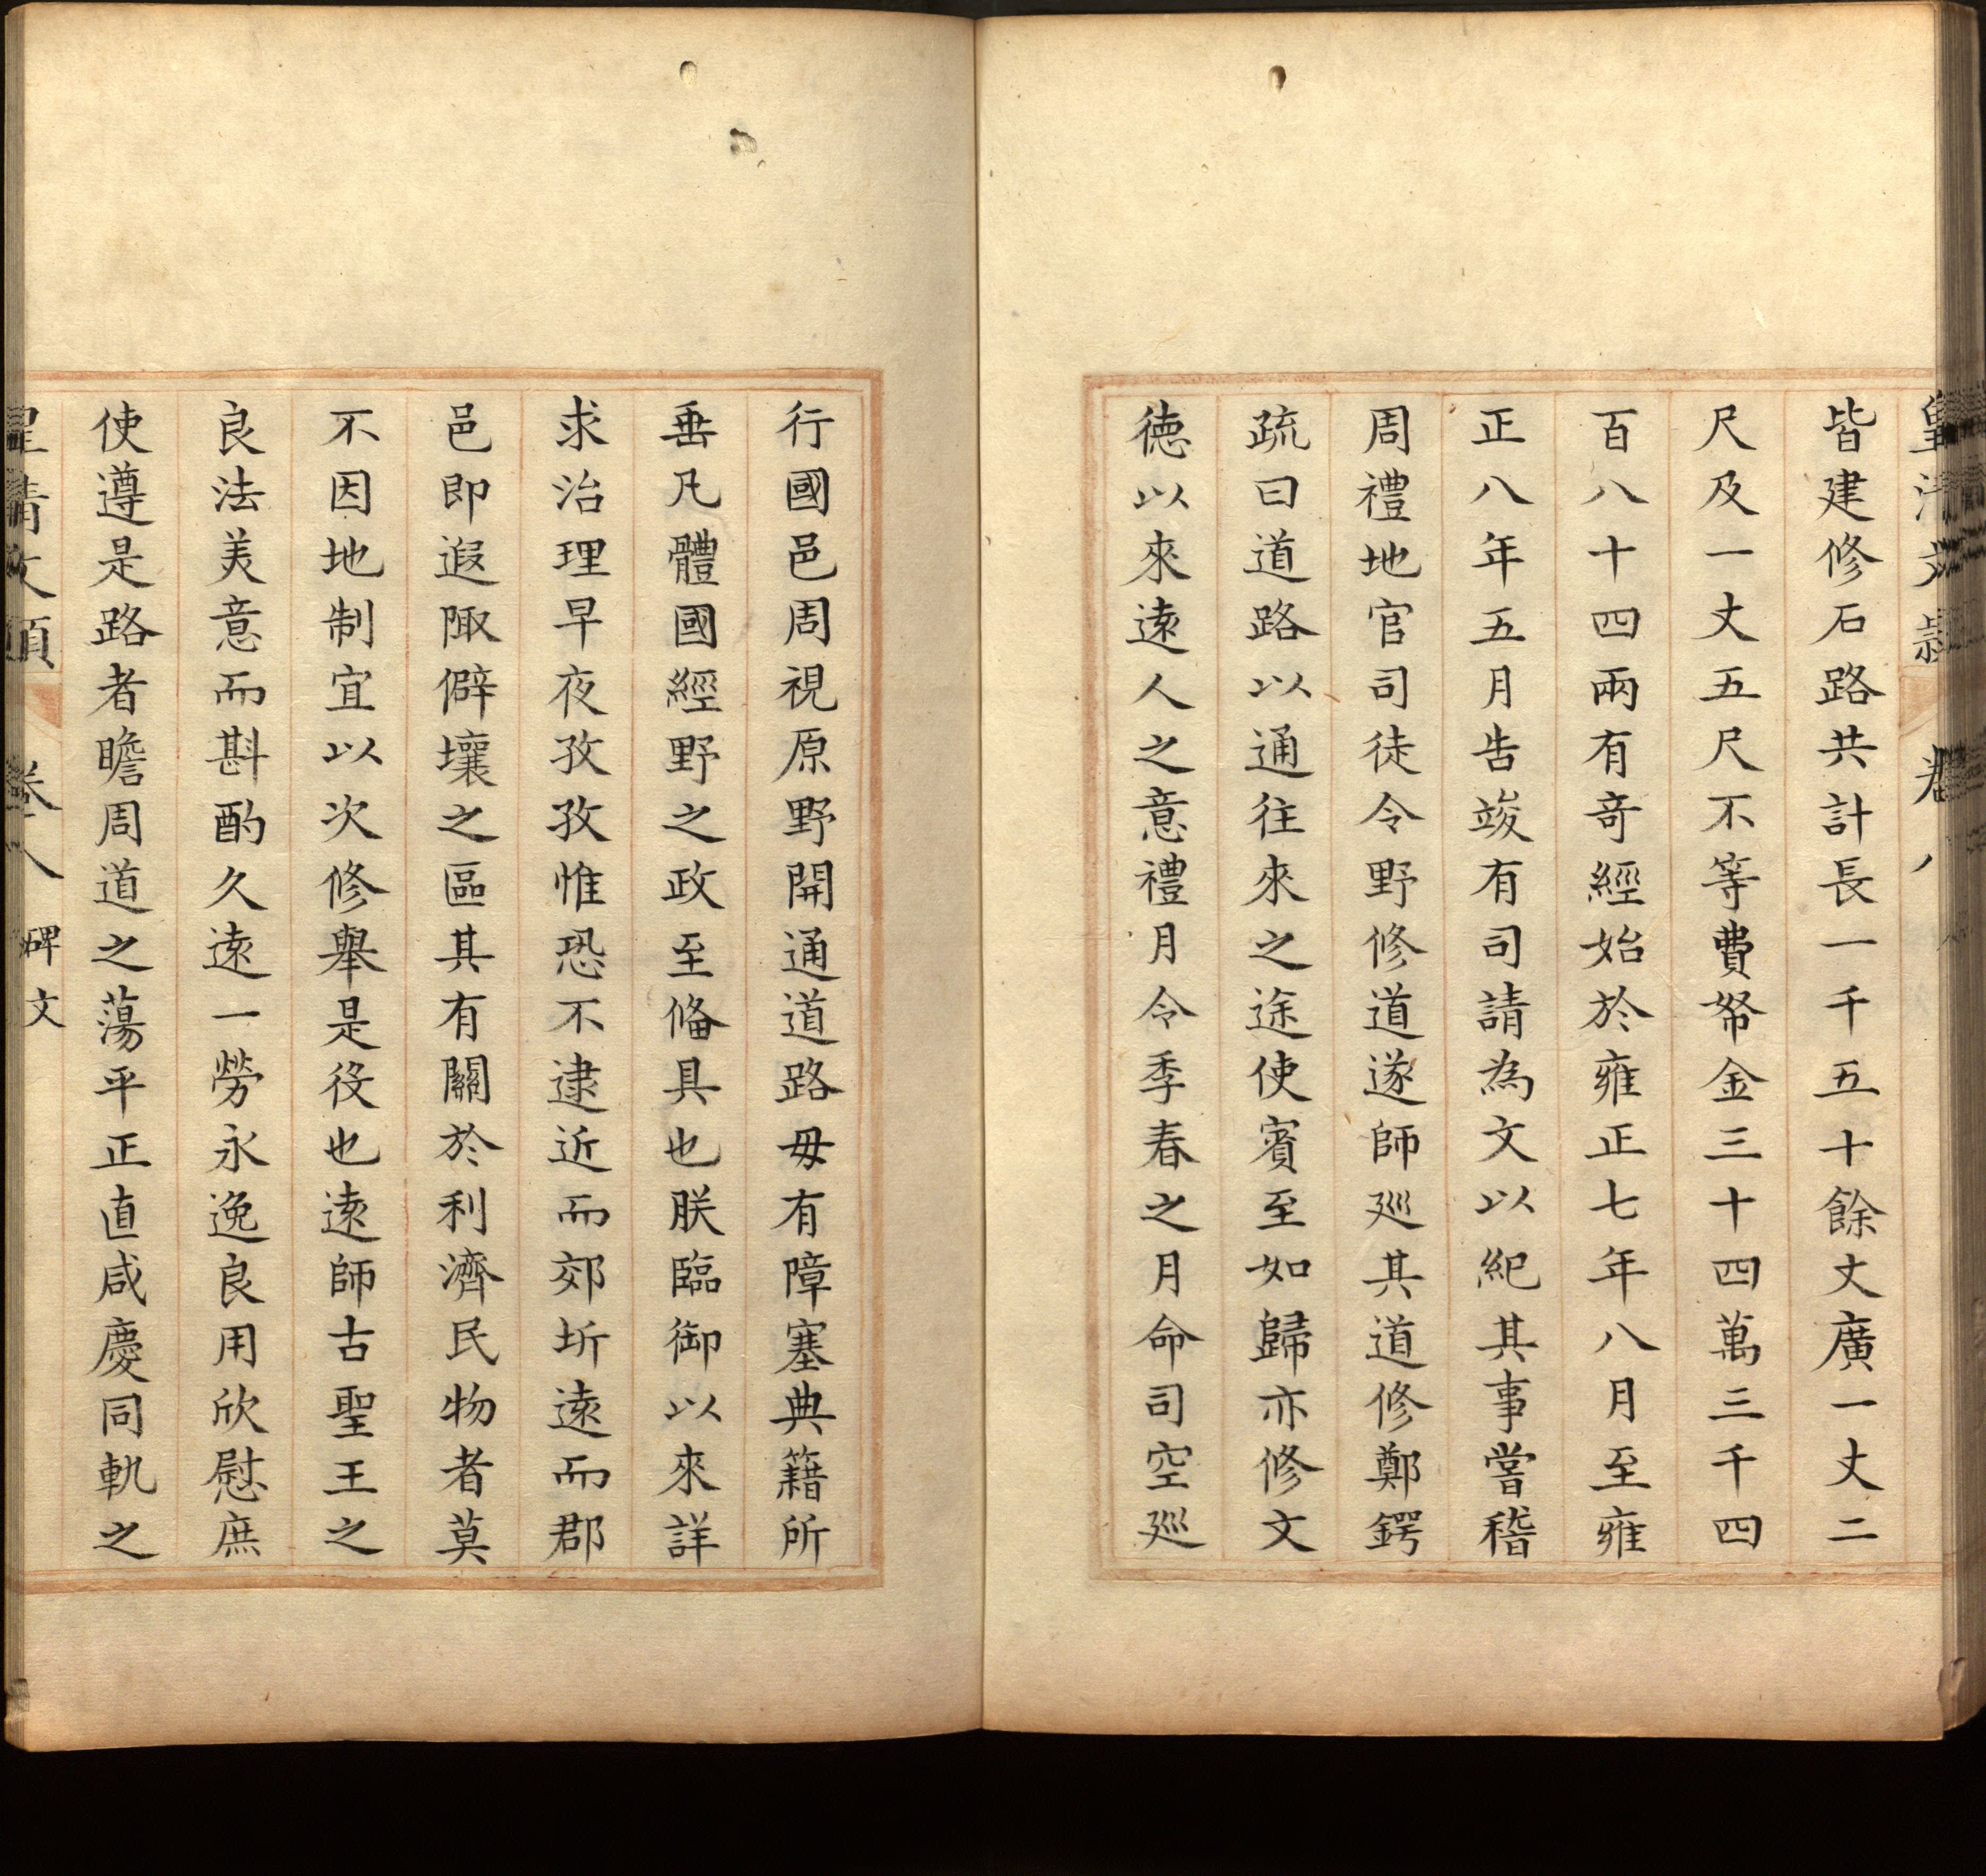 皇清文穎 卷八
皆建修石路共計長一千五十餘丈廣一丈二
尺及一丈五尺不等費帑金三十四萬三千四
百八十四兩有奇經始於雍正七年八月至雍
正八年五月告竣有司請為文以紀其事嘗稽
周禮地官司徒令野修道遂師廵其道修鄭鍔
疏曰道路以通往來之途使賓至如歸亦修文
徳以來逺人之意禮月令季春之月命司空廵
行國邑周視原野開通道路毋有障塞典籍所
垂凡體國經野之政至備具也朕臨御以來詳
求治理早夜孜孜惟恐不逮近而郊圻逺而郡
邑即遐陬僻壤之區其有關於利濟民物者莫
不因地制宜以次修舉是役也逺師古聖王之
良法美意而斟酌久逺一勞永逸良用欣慰庶
使遵是路者瞻周道之蕩平正直咸慶同軌之
皇清文穎 卷八 碑文